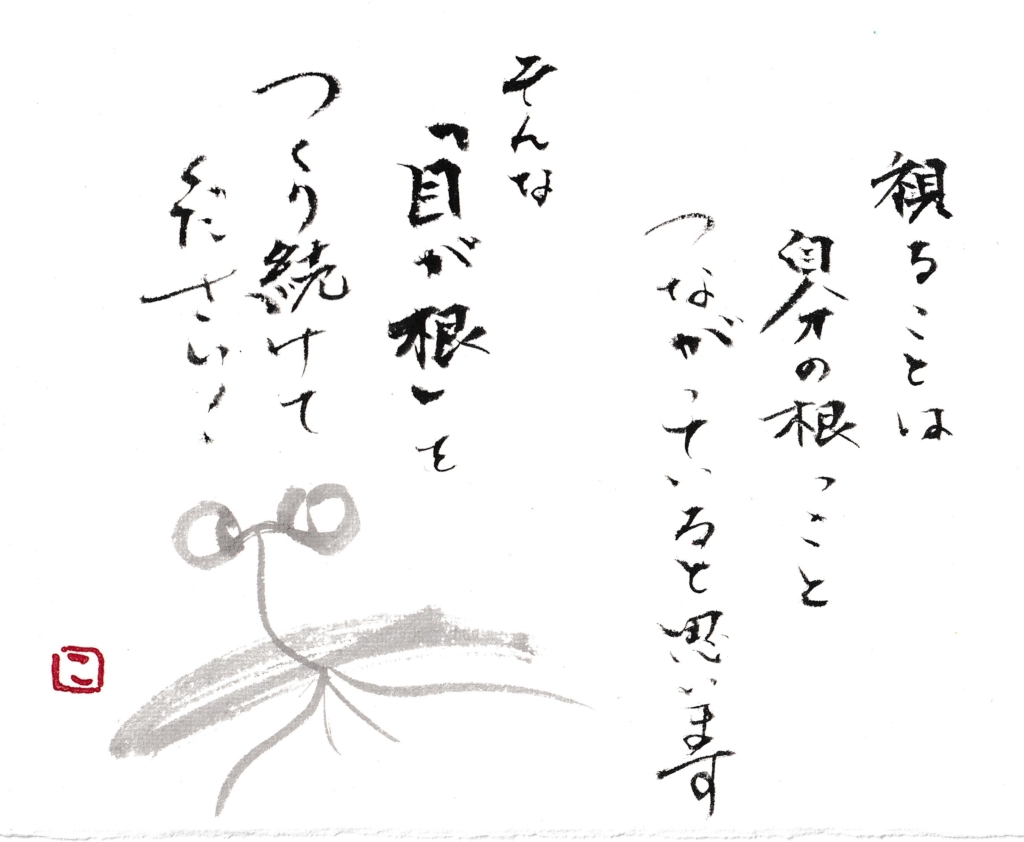 視ることは
自分の根っこと
つながっていると思います
そんな
「目が根」を
つくり続けて
ください!
こ